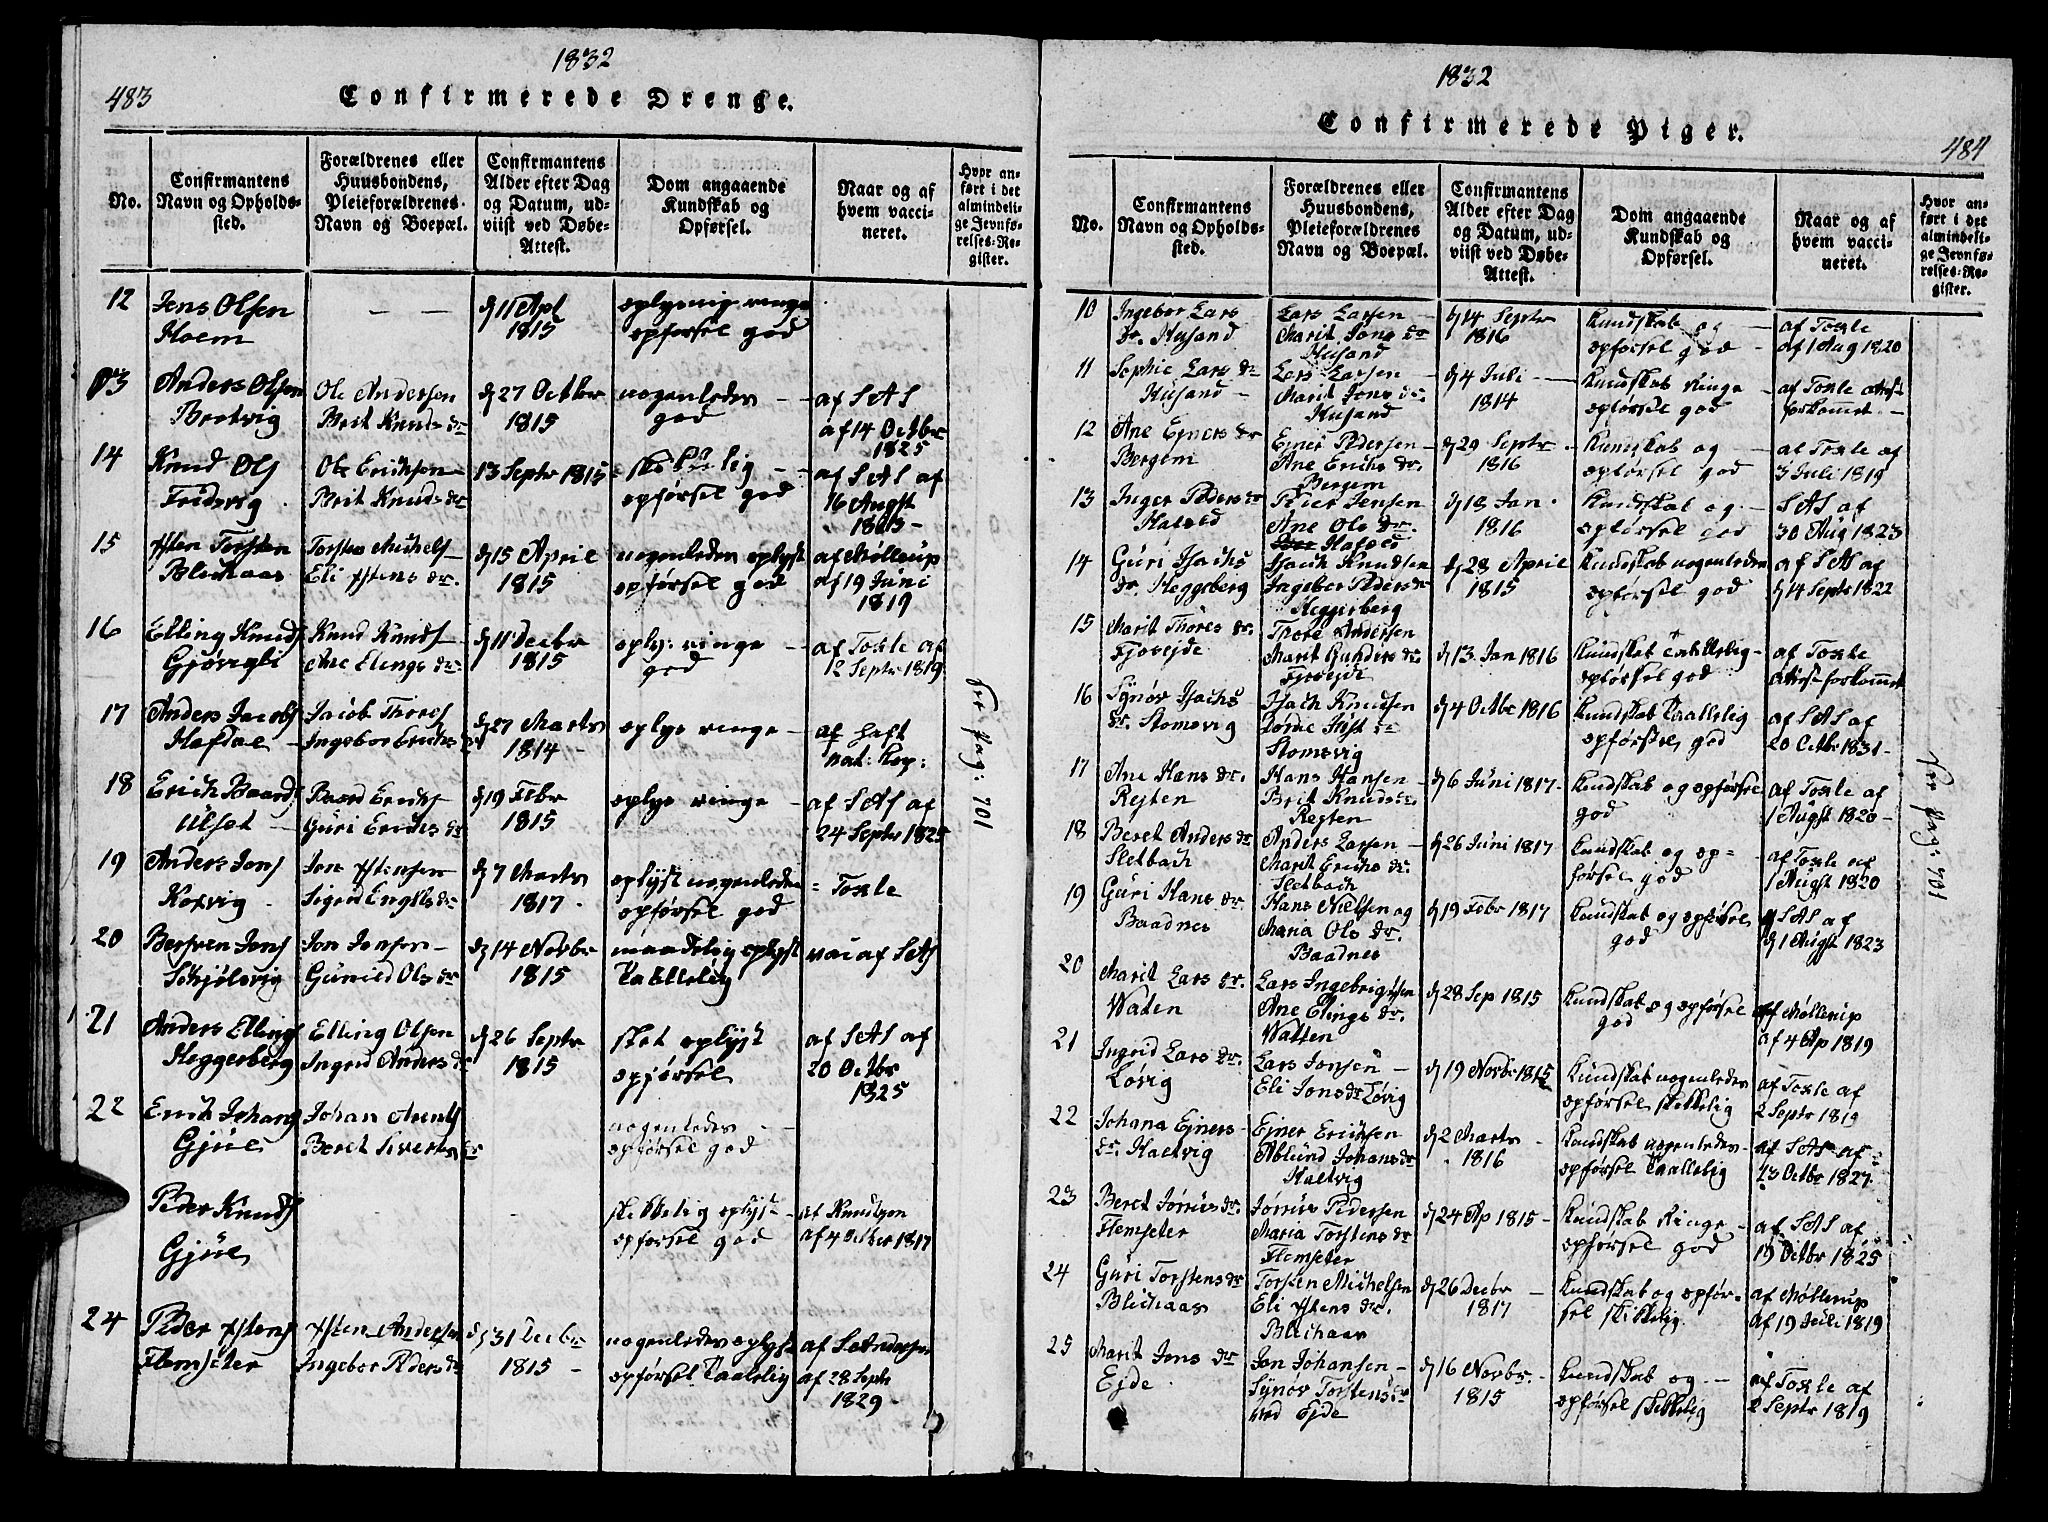 1832
483
Confirmerede Drenge.
No.
Confirmantens
Navn og Opholds-
sted.
Forældrenes eller
Huusbondens,
Pleieforældrenes
Navn og Boepæl.
Confirmantens
Alder efter Dag
og Datum, ud-
viist ved Døbe-
Attest.
Dom angaaende
Kundskab og
Opførsel.
Naar og af
hvem vacci-
neret.
Hvor an-
ført i det
almindeli-
ge Jevnfø-
relses-Re-
gister.
12
Jens Olsen
Hoem
— —
11 Apl
1815
oplysnig ringe
opførsel god
13
Anders Olsen
Bertvig
Ole Andersen
Brit Knuds dr
27 Octbr
1815
nogenledes
god
af SAS
af 14 Octbr
1825
14
Knud Ols
Tridsvig
Ole Eriksen
Brit Knuds dr
13 Septr 1815
opførsel god
af SAS af
16 Augst
15
Torsten
Blichaas
Torsten Michels
Eli Ystens dr.
15 April
1815
nogenledes oplyst
opførsel god
af Møllerup
af 19 Juni
1819
16
Elling Knuds
Gjøvigli
Knud Knuds
Ane Elings dr
11 Decbr
1815
oply: ringe
god
af Toxle af
12 Septr 1819
17
Anders Jacobs
Hafdal
Jacob Thores
Ingebor Erichs dr
27 Marts
1814
oplys ringe
af haft
nat: Kop:
18
Erich Baards
Ulset
Baard Erichs
Guri Erichs dr
19 Febr
1815
oplys ringe
af SAS af
24 Septr 1825
19
Anders Jons
Kolvig
Jon Ystensen
Sigrid Engels dr
7 Marts
1817
oplyst nogenledes
opførsel god
= Toxle
20
Jons
Jon Jonsen
Gunild Ols dr
14 Novbr
1815
maadelig oplyst
taallelig
vac af SAS
21
Anders Ellings
Heggerberg
Elling Olsen
Ingrid Anders dr
26 Septr
1815
slet oplyst
opførsel
af SAS af
20 Octbr
1825
22
Erich Johans
Gjul
Johan Arents
Beret Siverts dr
nogenledes
opførsel god
Peder Knuds
Gjul
skikkelig oplyst
opførsel god
af Knudtzon
af 4 October 1817
24
Peder Ystens
Flemseter
Ysten Andersen
Ingebor Peders dr
31 Decbr
1815
nogenledes oplyst
opførsel taalelig
af S Andersen
af 28 Septr
1829
see pag: 701
1832
Confirmerede Piger.
484
No.
Confirmantens
Navn og Opholds-
sted.
Forældrenes eller
Huusbondens,
Pleieforældrenes
Navn og Boepæl.
Confirmantens
Alder efter Dag
og Datum, ud-
viist ved Døbe-
Attest.
Dom angaaende
Kundskab og
Opførsel.
Naar og af
hvem vacci-
neret.
Hvor an-
ført i det
almindeli-
ge Jevnfø-
relses-Re-
gister.
10
Ingebor Lars
dr. Husand
Lars Larsen
Marit Jons dr
Husand
14 Septr
1816
Kundskab og
opførsel god
af Toxle
af 1 Aug 1820
11
Sophie Lars dr
Husand
Lars Larsen
Marit Jons dr.
Husand
4 Juli
1814
Kundskab ringe
opførsel god
af Toxle Attest
forkommet
12
Ane Ejners dr
Bergem
Ejner Pedersen
Ane Erichs dr.
Bergem
29 Septr
1816
Kundskab og
opførsel god
af Toxle af
3 Juli 1819
13
Inger Peders dr
Halsed
Peder Jensen
Ane Ols dr.
18 Jan
1816
Kundskab og
opførsel god
SAS af
30 Aug 1823
14
Guri Isachs
dr. Heggeberg
Isach Knudsen
Ingeber Peders dr
Heggerberg
28 April
1815
Kundskab nogenledes
opførsel god
af SAS af
14 Septr 1822
15
Marit Thores dr.
Fjorejde
Thore Andersen
Marit Gunders dr
Fjorejde
13 Jan 1816
Kundskab taallelig
opførsel god
af Toxle
Attest forkommet
16
Synøv Isachs
dr. Stomsvig
Isach Knudsen
Stomsvig
4 Octbr 1816
Kundskab taallelig
opførsel god
af SAS af
20 Octbr 1831
17
Ane Hans dr.
Rejten
Hans Hansen
Brit Knuds dr
Rejten
6 Juni 1817
Kundskab og opførsel
god
af Toxle af
1 Augst 1820
18
Beret Anders dr
Sletbach
Anders Larsen
Marit Erichs dr.
Sletbach
26 Juni 1817
Kundskab og op=
førsel god
af Toxle af
1 Augst 1820
19
Guri Hans dr.
Baadnes
Hans Nielsen og
Maria Ols dr.
Baadnes
19 Febr 1817
Kundskab og opførsel
god
SAS af
1 Augst 1823
20
Marit Lars dr.
Watten
Lars Ingebrigtsen
Ane Elings dr.
Watten
28 Sep 1815
Kundskab og opførsel
god
af Møllerup
af 4 Ap 1819
21
Ingrid Lars dr.
Løvig
Lars Jonsen
Eli Jons dr Løvig
19 Novbr 1815
Kundskab nogenledes
opførsel skikkelig
af Toxle af
2 Septr 1819
22
Johana Ejners
dr. Haltvig
Ejner Erichsen
Ablund Johans dr
Haltvig
2 Marts
1816
Kundskab nogenledes
opførsel taallelig
af SAS af
23 Octbr 1827
23
Beret Jørrius dr.
Flemseter
Jørrius Pedersen
Maria Torstens dr
Flemseter
24 Ap 1815
Kundskab ringe
opførsel god
af SAS af
19 Octbr 1825
24
Guri Torstens dr
Blichaas
Torsten Michelsen
Eli Ystens dr.
Blichaas
26 Decbr
1817
Kundskab og opfør-
sel skikkelig
af Møllerup
af 19 Juli 1819
25
Marit Jons dr
Ejde
Jon Johansen
Synøv Torstens dr
ved Ejde
16 Novbr.
1815
Kundskab og
opførsel skikkelig
af Toxle af
2 Septr 1819
see pag: 701